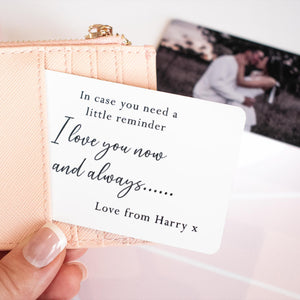 In case you need a
little reminder
I love you now
and always......
Love from Harry x